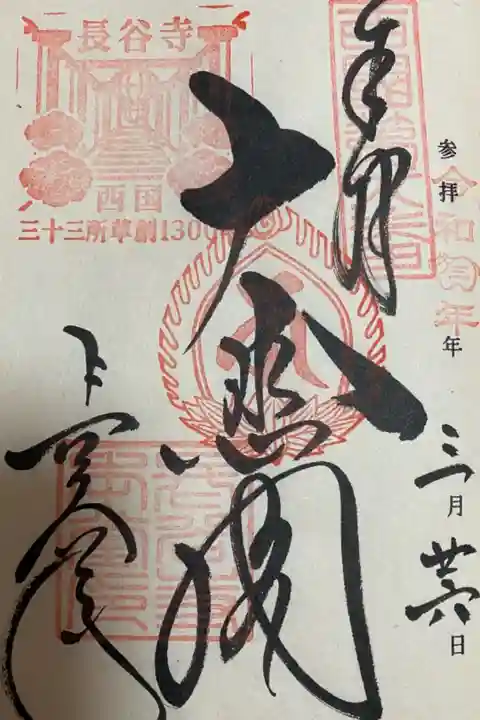 参拝
令和 年
年
三月
廿六日
奉拝
西国第八番
大悲閣
長谷寺
西国
三十三所草創1300
長谷寺